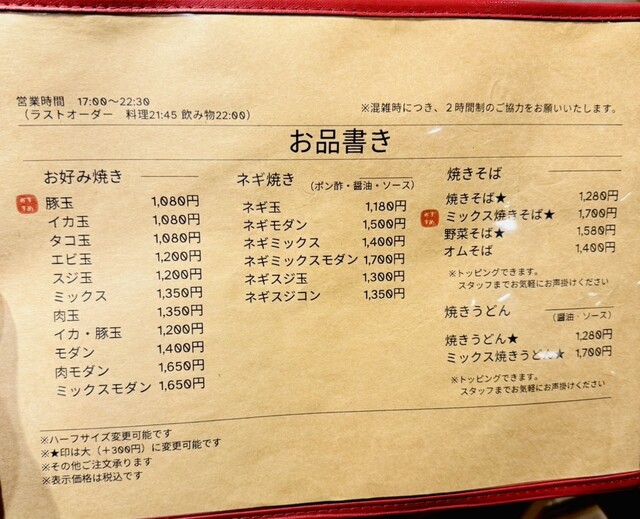 営業時間 17:00〜22:30
（ラストオーダー 料理21:45 飲み物22:00）
※混雑時につき、2時間制のご協力をお願いいたします。
お品書き
お好み焼き
おすすめ 豚玉 1,080円
イカ玉 1,080円
タコ玉 1,080円
エビ玉 1,200円
スジ玉 1,200円
ミックス 1,350円
肉玉 1,350円
イカ・豚玉 1,200円
モダン 1,400円
肉モダン 1,650円
ミックスモダン 1,650円
ネギ焼き （ポン酢・醤油・ソース）
ネギ玉 1,180円
ネギモダン 1,500円
ネギミックス 1,400円
ネギミックスモダン 1,700円
ネギスジ玉 1,300円
ネギスジコン 1,350円
焼きそば
焼きそば★ 1,280円
おすすめ ミックス焼きそば★ 1,700円
野菜そば★ 1,580円
オムそば 1,400円
※トッピングできます。
スタッフまでお気軽にお声掛けください
焼きうどん （醤油・ソース）
焼きうどん★ 1,280円
ミックス焼きうどん★ 1,700円
※トッピングできます。
スタッフまでお気軽にお声掛けください
※ハーフサイズ変更可能です
※★印は大（＋300円）に変更可能です
※その他ご注文承ります
※表示価格は税込です